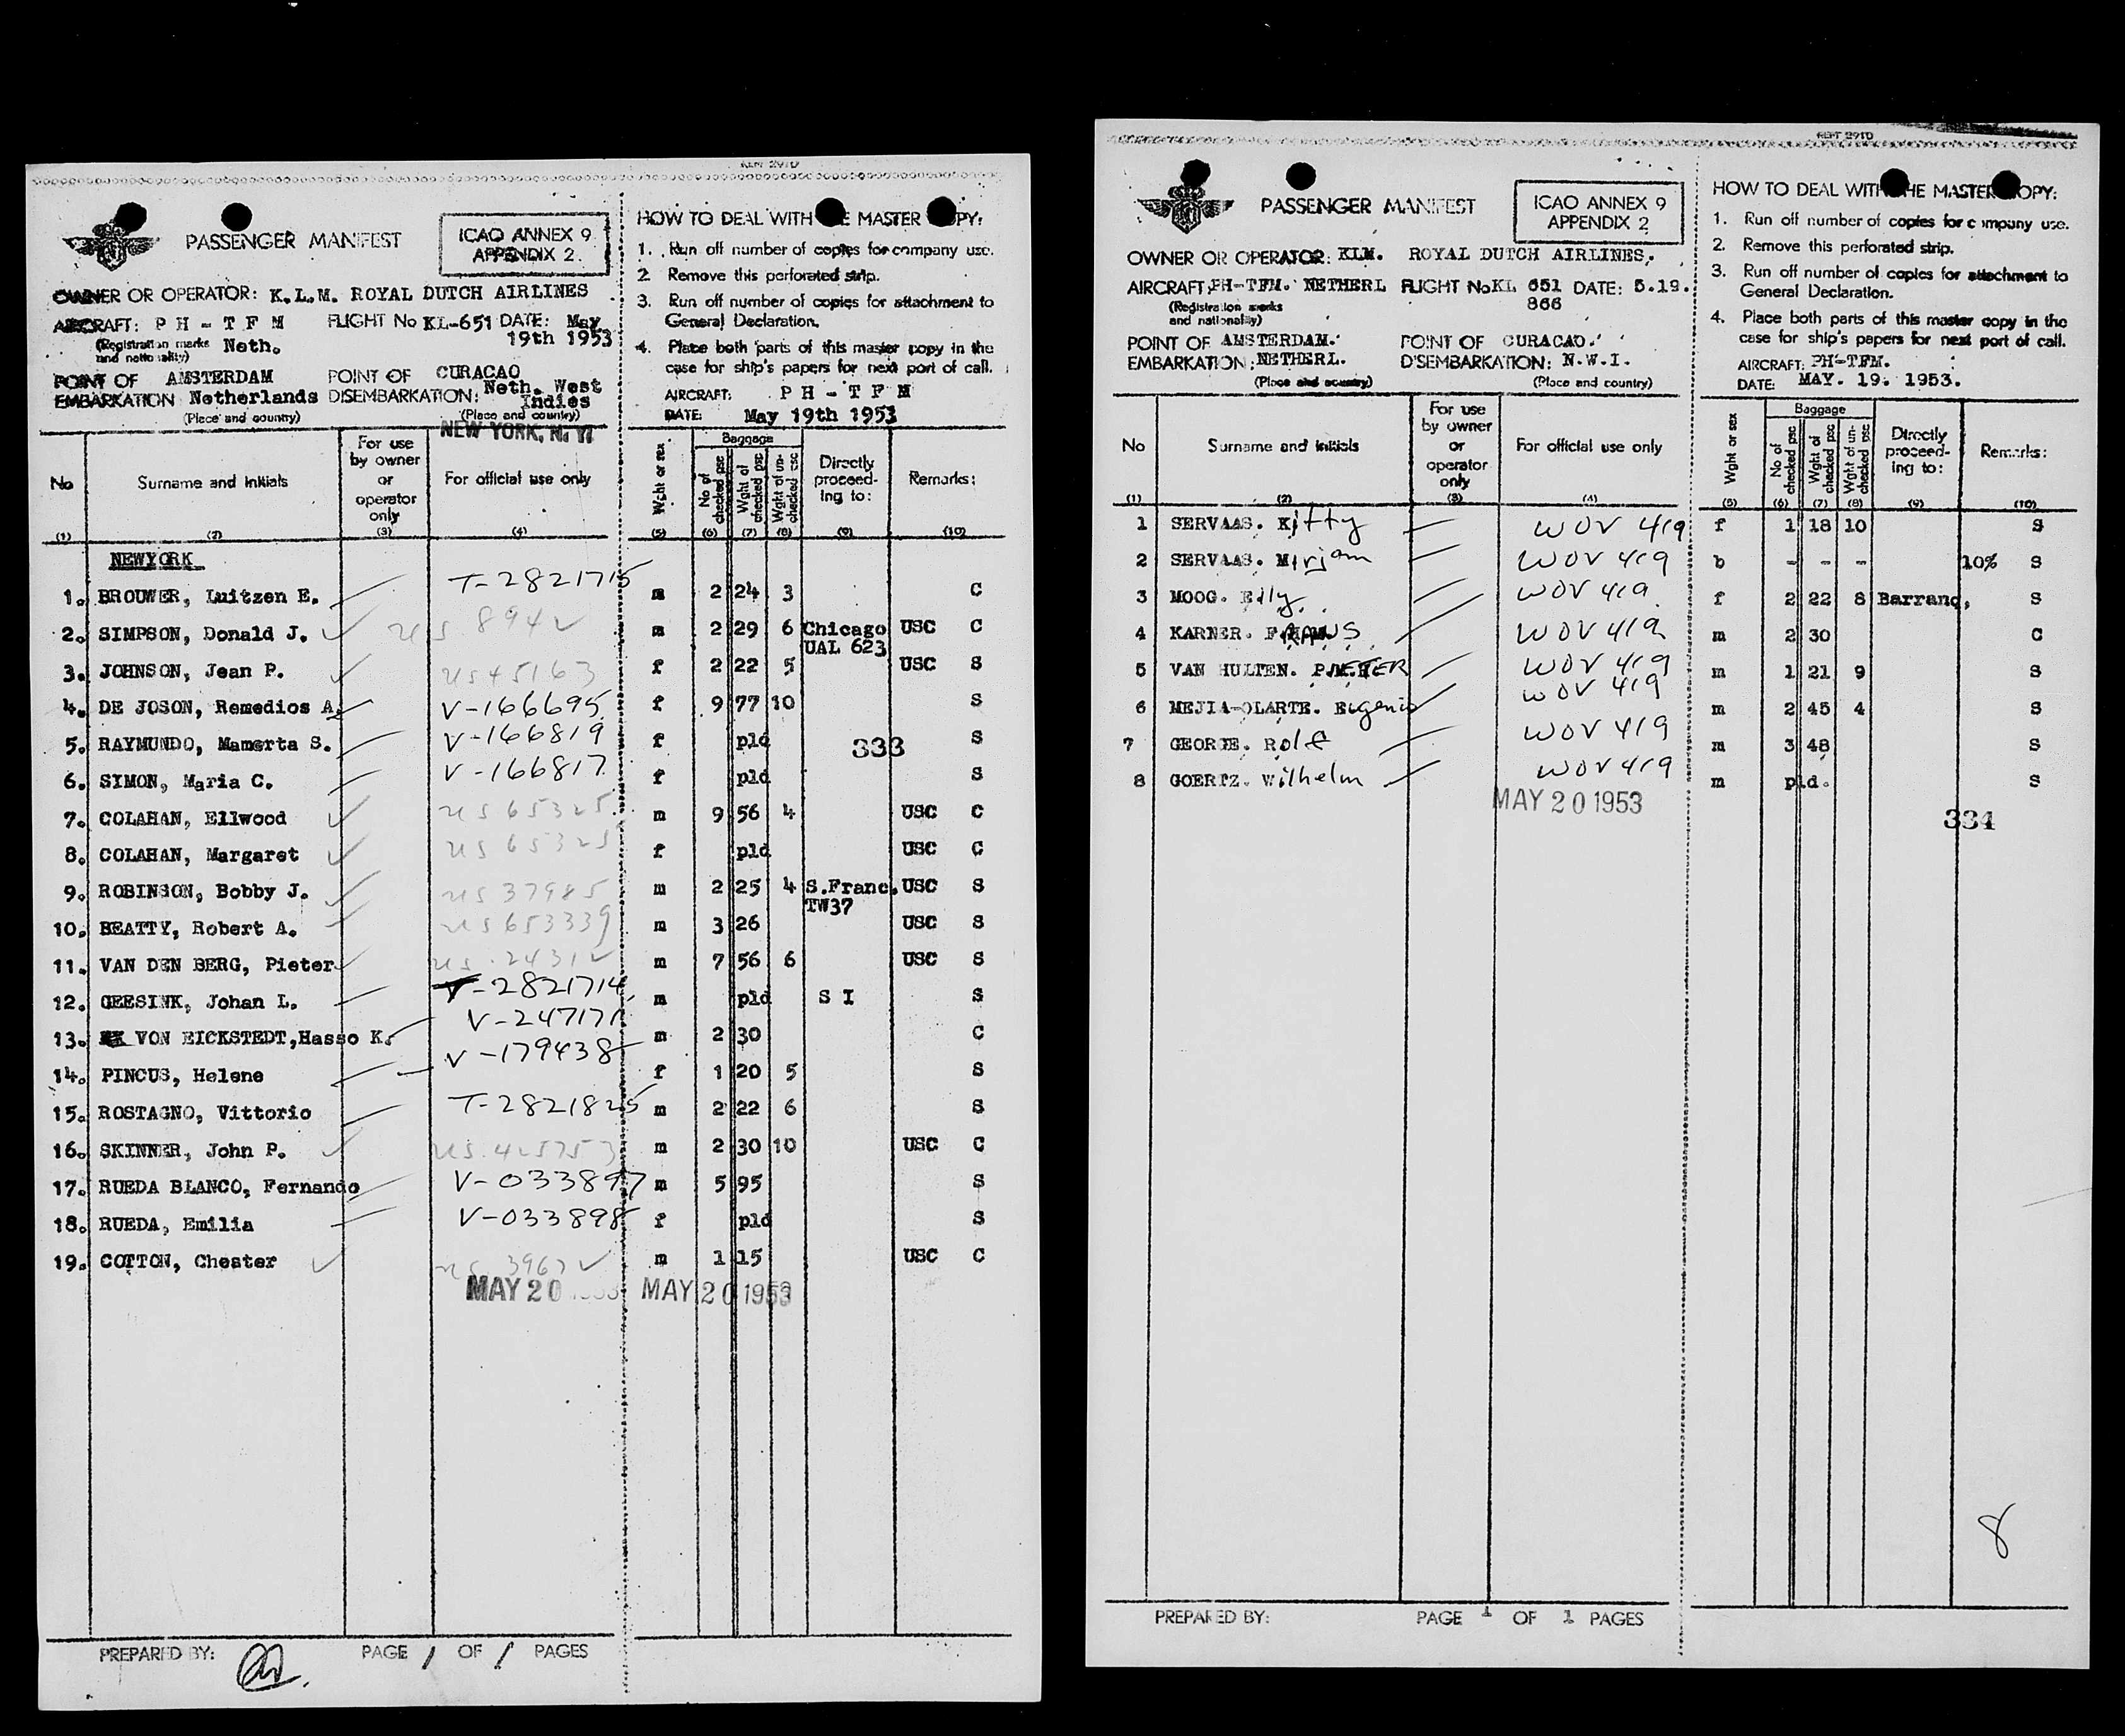 KLM 291D
PASSENGER MANIFEST
ICAO ANNEX 9
APPENDIX 2
OWNER OR OPERATOR: K.L.M. ROYAL DUTCH AIRLINES
AIRCRAFT: P H - T F M FLIGHT No KL-651 DATE: May 19th 1953
(Registration marks and nationality) Neth.
POINT OF EMBARKATION AMSTERDAM Netherlands
POINT OF DISEMBARKATION: CURACAO Neth. West Indies
(Place and country) (Place and country)
NEW YORK, N. Y.
HOW TO DEAL WITH MASTER PY:
1. Run off number of copies for company use.
2. Remove this perforated strip.
3. Run off number of copies for attachment to
General Declaration.
4. Place both parts of this master copy in the
case for ship's papers for next port of call.
AIRCRAFT: P H - T F M
DATE: May 19th 1953
No Surname and initials For use by owner or operator only For official use only Wght or sex Baggage No of checked psc Wght of checked psc Wght of un-checked psc Directly proceed-ing to: Remarks:
(1) (2) (3) (4) (5) (6) (7) (8) (9) (10)
NEWYORK
1. BROUWER, Luitzen E. T-2821715 m 2 24 3 C
2. SIMPSON, Donald J. us 894 m 2 29 6 Chicago UAL 623 USC C
3. JOHNSON, Jean P. us 45163 f 2 22 5 USC S
4. DE JOSON, Remedios A. V-166695 f 9 77 10 S
5. RAYMUNDO, Mamerta S. V-166819 f pld 333 S
6. SIMON, Maria C. V-166817 f pld S
7. COLAHAN, Ellwood us 65325 m 9 56 4 USC C
8. COLAHAN, Margaret us 65325 f pld USC C
9. ROBINSON, Bobby J. us 37985 m 2 25 4 S.Franc. TW37 USC S
10. BEATTY, Robert A. us 653339 m 3 26 USC S
11. VAN DEN BERG, Pieter us 2431 m 7 56 6 USC S
12. GEESINK, Johan L. T-2821714 m pld S I S
13. VON EICKSTEDT,Hasso K. V-247171 m 2 30 C
14. PINCUS, Helene V-179438 f 1 20 5 S
15. ROSTAGNO, Vittorio T-2821825 m 2 22 6 S
16. SKINNER, John P. us m 2 30 10 USC C
17. RUEDA BLANCO, Fernando V-033897 m 5 95 S
18. RUEDA, Emilia V-033898 f pld S
19. COTTON, Chester us m 1 15 USC C
MAY 20 1953 MAY 20 1953
PREPARED BY: PAGE 1 OF 1 PAGES
KLM 291D
PASSENGER MANIFEST
ICAO ANNEX 9
APPENDIX 2
OWNER OR OPERATOR: KLM. ROYAL DUTCH AIRLINES.
AIRCRAFT: PH-TFM. NETHERL FLIGHT No KL 651 866 DATE: 5.19.
(Registration marks and nationality)
POINT OF EMBARKATION: AMSTERDAM. NETHERL.
POINT OF DISEMBARKATION: CURACAO. N.W.I.
(Place and country) (Place and country)
HOW TO DEAL WITH HE MASTER OPY:
1. Run off number of copies for company use.
2. Remove this perforated strip.
3. Run off number of copies for attachment to
General Declaration.
4. Place both parts of this master copy in the
case for ship's papers for next port of call.
AIRCRAFT: PH-TFM.
DATE: MAY. 19. 1953.
No Surname and initials For use by owner or operator only For official use only Wght or sex Baggage No of checked psc Wght of checked psc Wght of un-checked psc Directly proceed-ing to: Remarks:
(1) (2) (3) (4) (5) (6) (7) (8) (9) (10)
1 SERVAAS. Kitty WOV 419 f 1 18 10 S
2 SERVAAS. Mirjam WOV 419 b - - - 10% S
3 MOOG. Elly. WOV 419 f 2 22 8 Barranq, S
4 KARNER. FRANS WOV 419 m 2 30 C
5 VAN HULTEN. PIETER WOV 419 m 1 21 9 S
6 MEJIA-OLARTE. Eugenio WOV 419 m 2 45 4 S
7 GEORGE. Rolf WOV 419 m 3 48 S
8 GOERTZ. Wilhelm WOV 419 m pld. S
MAY 20 1953
334
8
PREPARED BY: PAGE 1 OF 1 PAGES